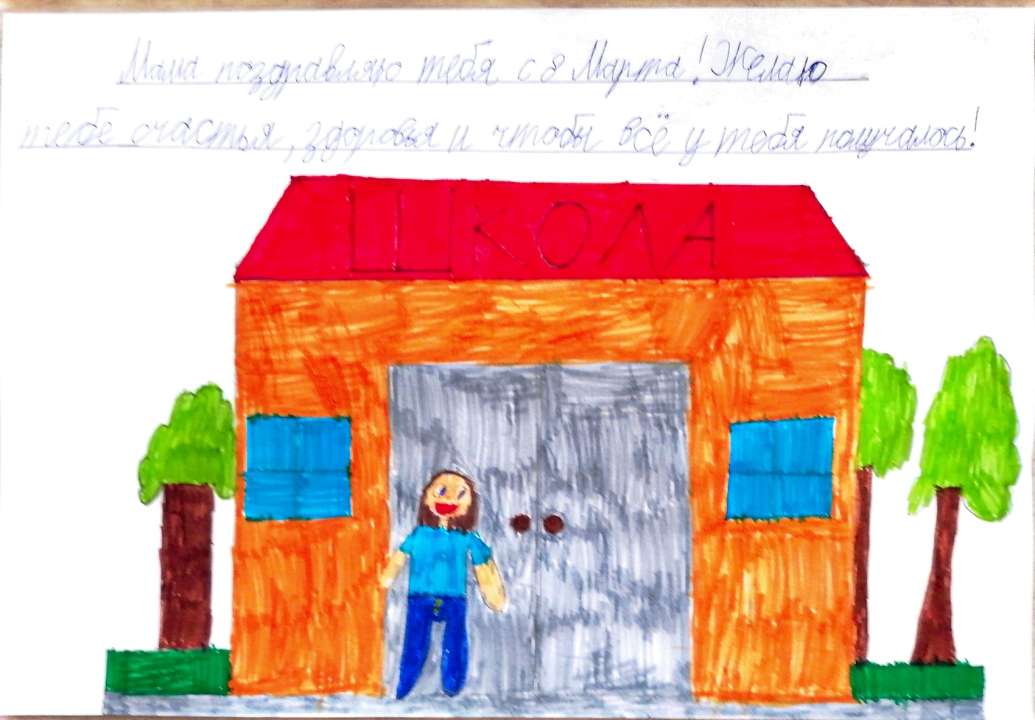 Мама поздравляю тебя с 8 Марта! Желаю
тебе счастья, здоровья и чтобы всё у тебя получалось!
ШКОЛА